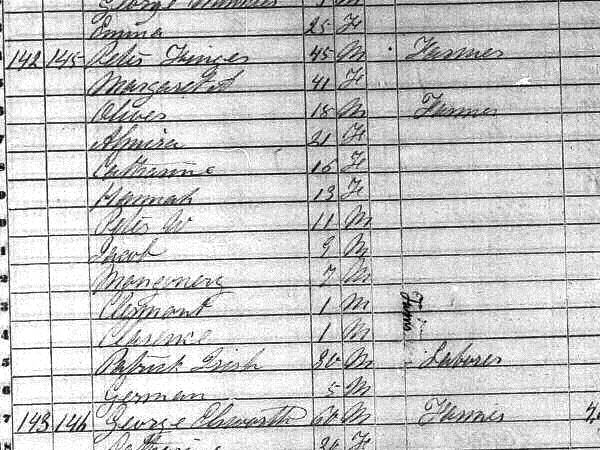 Emma 25 F
142 145 Peter Finger 45 M Farmer
Margaret A 41 F
Oliver 18 M Farmer
Almira 21 F
Catharine 16 F
Hannah 13 F
Peter W 11 M
Jacob 9 M
7 M
Clermont 1 M
Clarence 1 M
Patrick Irish 30 M Laborer
German 5 M
143 146 George Elsworth 60 M Farmer
F